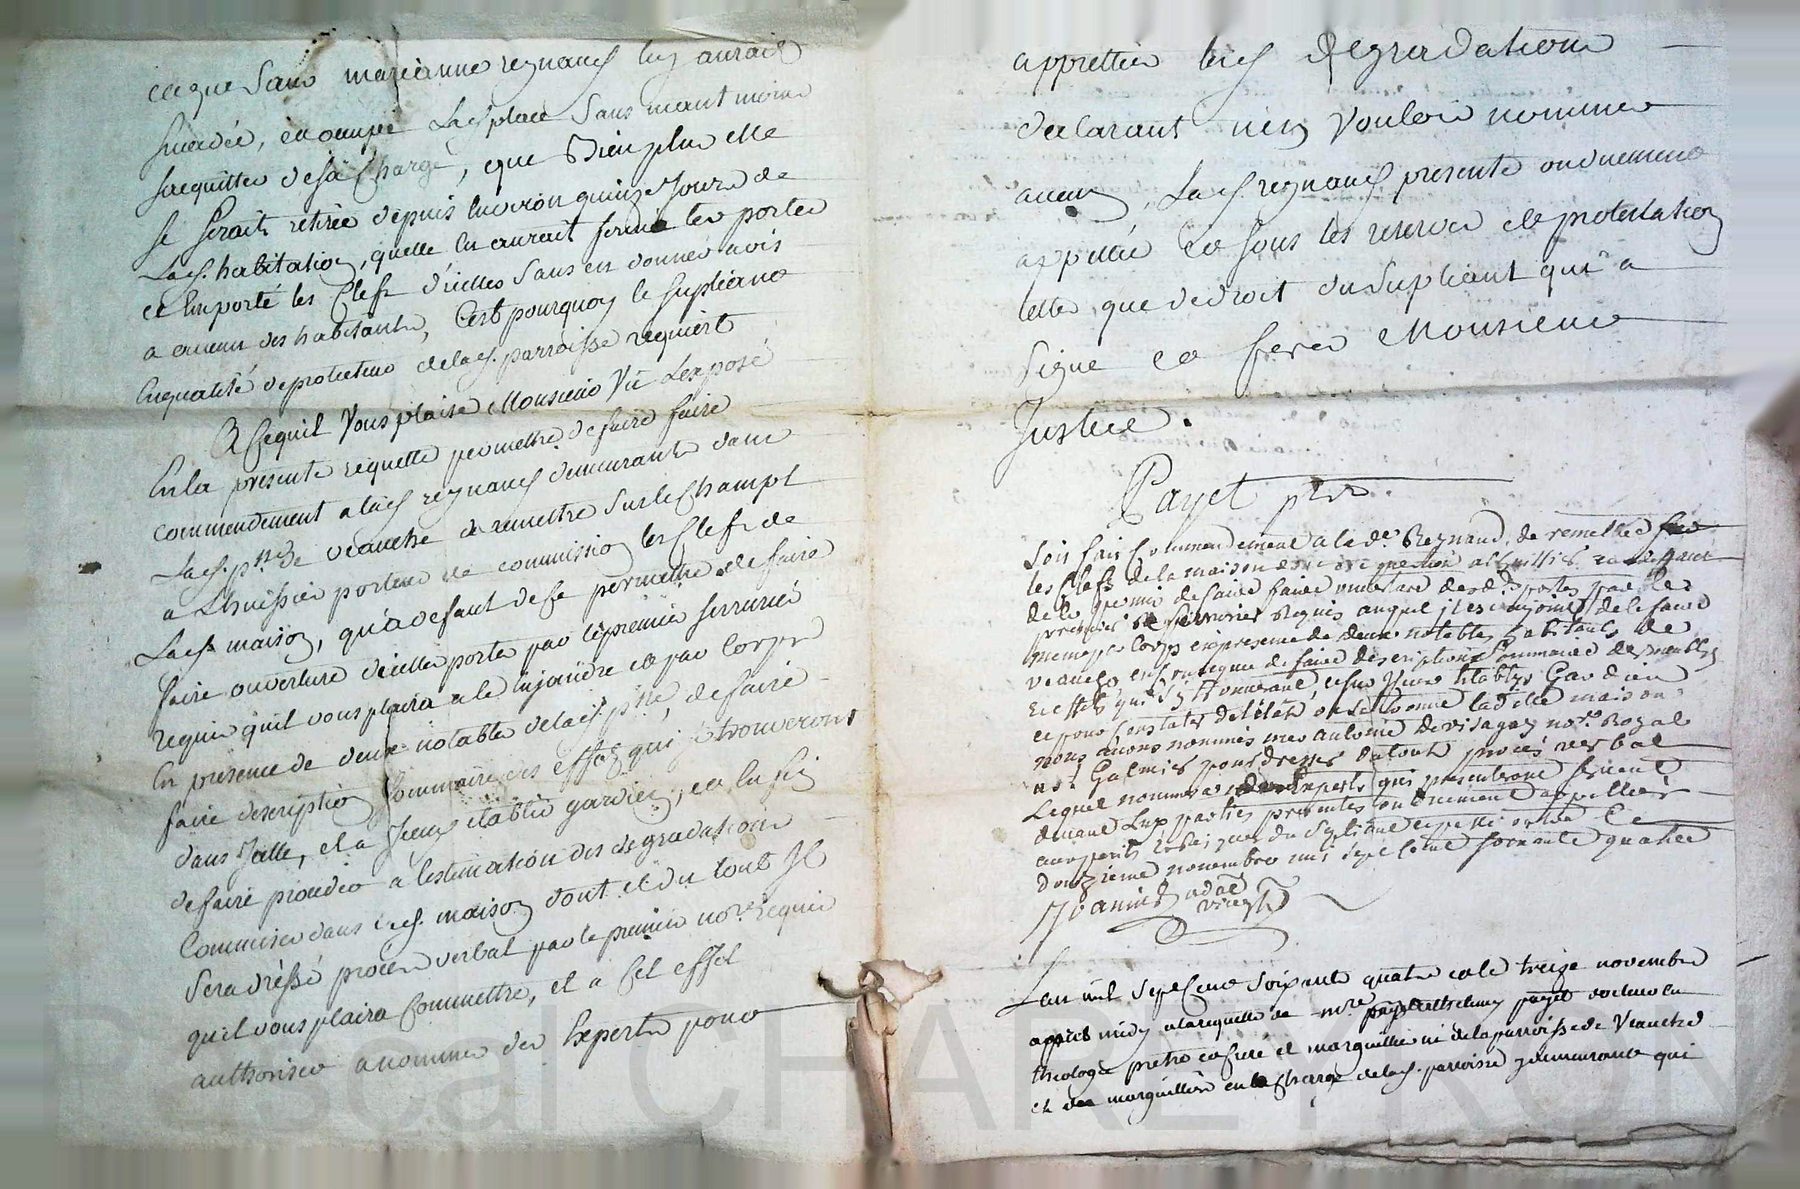 ce que sans marianne reynaud luy aurait
succedée, et occupée Lad. place Sans neant moins
sacquitter de sa Charge, que Bien plus elle
se Serait retirée depuis environ quinze Jours de
Lad. habitation, quelle en aurait fermé les portes
et Emporté les Clefs d'icelles Sans en donner avis
a aucun des habitants, C'est pourquoy le supliant
Enqualité de protecteur de lad. parroisse requiert
A Cequil Vous plaise Monsieur Vu Lexposé
En la presente requette permettre de faire faire
commendement a lad. reynaud demeurante dans
Lad. p.sse de veauche de remettre Sur le Champt
a L'huissier porteur de commission les Clefs de
Lad. maison, qu'a defaut de ce permettre de faire
faire ouverture d'icelles portes par le premier serrurier
requis quil vous plaira a le injoindre et par Corps
En presence de deux notables de lad. p.sse, de faire
faire description Sommaire des effets qui se trouveront
dans Icelle, et a Iceux etablir gardien, et en fin
de faire proceder a lestimation des degradations
Commises dans lad. maison dont et du tout Il
Sera dressé procès verbal par le premier no.re requis
quil vous plaira Commettre, et a Cet effet
authoriser a nommer des Experts pour
apprettier les d. degradations
declarant n'en Vouloir nommer
aucun, Lad. reynaud presente ou duement
appellée et sous les reserves et protestation
telles que de droit du supliant qui a
Signé et ferez Monsieur
Justice.
Payet ptre.
Soit fait Commendement a la d.e Reynaud de remettre
les Clefs de la maison dont est question a L'huissier et a deffaut
de le permis de faire faire ouverture des d. portes par le
premier serrurier Requis auquel il est enjoint de le faire
meme par Corps en presence de deux notables habitants de
veauche ensemble de faire description Sommaire des meubles
et effets qui s'y trouveront, et sur Iceux etablir Gardien
et pour Constater de l'état ou se trouve la dite maison
nous avons nommés me antoine Devisaguet no.re Royal
a S.t Galmier pour dresser du tout procès verbal
Lequel nommera des Experts qui presteront serment
devant Luy parties presentes ou duement appellées
aux perils et risques du supliant et petitionnaire Ce
douzieme novembre mil sept cent soixante quatre
Lan mil Sept Cent Soixante quatre et le treize novembre
apprès midy a la requette de m.re payet docteur en
theologie pretre et Curé et marguillier né de la parroisse de Veauche
et des marguilliers en Charge de lad. parroisse y demeurants qui
Pascal CHAREYRON